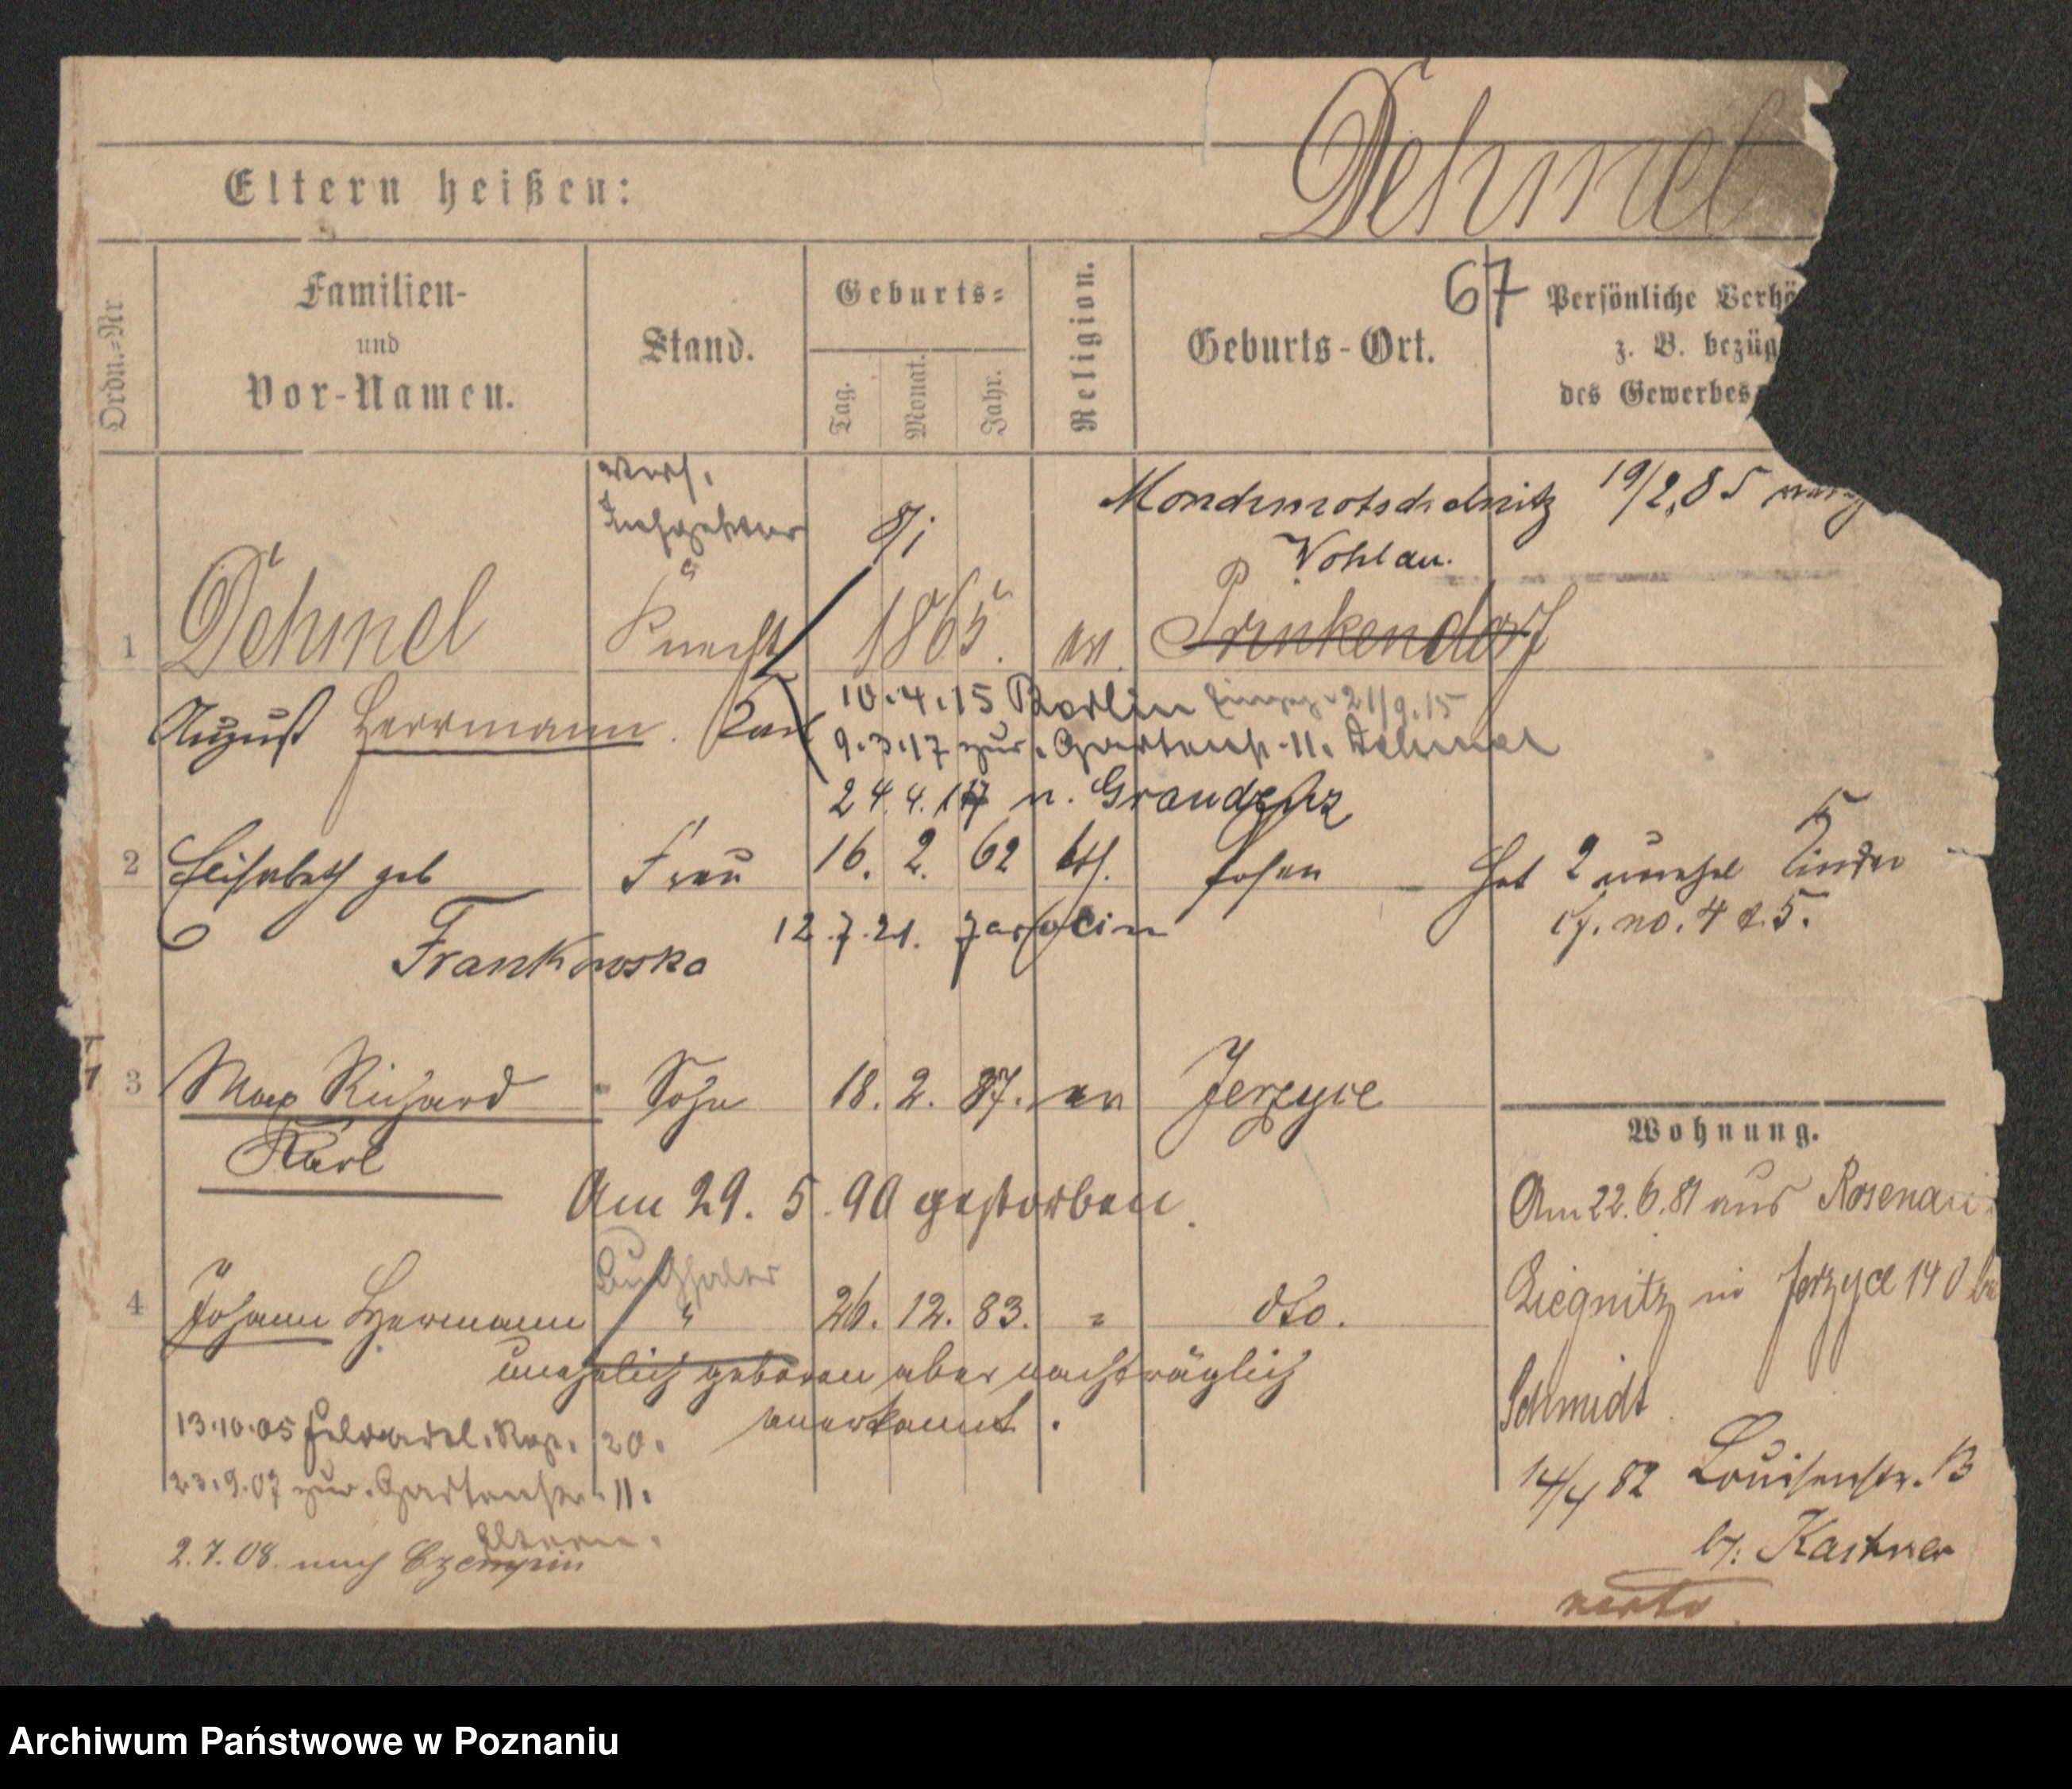 Dehmel
Eltern heißen:
Ordn.-Nr
Familien-
und
Vor-Namen.
Stand.
Geburts-
Tag.
Monat.
Jahr.
Religion.
Geburts-Ort.
67
Persönliche Verhä
z. B. bezüg
des Gewerbes
Vers.
Inspektor
8/1
19/2.85
Wohlau.
1 Dehmel Knecht 1865. ev. Prinkendorf
August Herrmann. Karl
10.4.15 Berlin 21/9.15
9.3.17 zur. Gartenstr. 11. Dehmel
24.4.17 n. Graudenz
2 Elisabeth geb Frau 16. 2. 62 kth. Posen Hat 2 unehel Kinder
cf. no. 4 & 5.
Frankowska
12.7.21. Jarocin
3 Max Richard Sohn 18. 2. 87. ev Jerzyce
Karl
Am 29. 5. 90 gestorben.
Buchhalter
4 Johann Hermann " 26. 12. 83. " dto.
unehelich geboren aber nachträglich
anerkannt.
13.10.05 20.
23.9.07 zur. Gartenstr. 11.
Eltern.
2.7.08. nach Czempin
Wohnung.
Am 22.6.81 aus Rosenau
Liegnitz in Jerzyce 140 be
Schmidt
14/4 82 Louisenstr. 13
b/: Kastner
verte
Archiwum Państwowe w Poznaniu